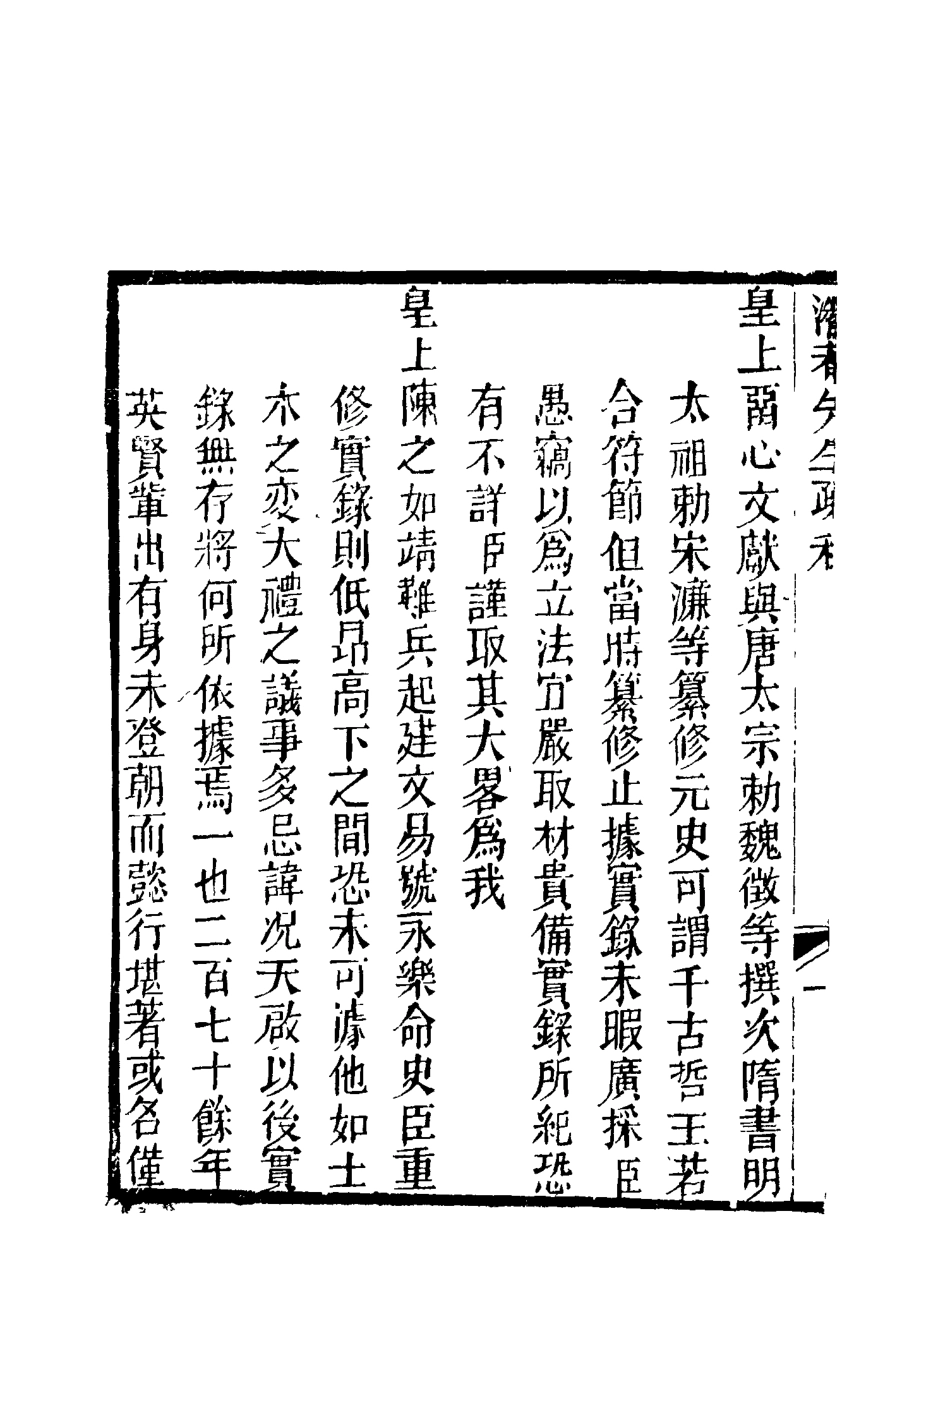 潛菴先生疏稿
一
皇上畱心文獻與唐太宗勅魏徵等撰次隋書明
太祖勅宋濂等纂修元史可謂千古哲王若
合符節但當時纂修止據實錄未暇廣採臣
愚竊以爲立法宜嚴取材貴備實錄所紀恐
有不詳臣謹取其大畧爲我
皇上陳之如靖難兵起建文易號永樂命史臣重
修實錄則低昂高下之間恐未可據他如士
木之変大禮之議事多忌諱况天啟以後實
錄無存將何所依據焉一也二百七十餘年
英賢輩出有身未登朝而懿行堪著或名僅